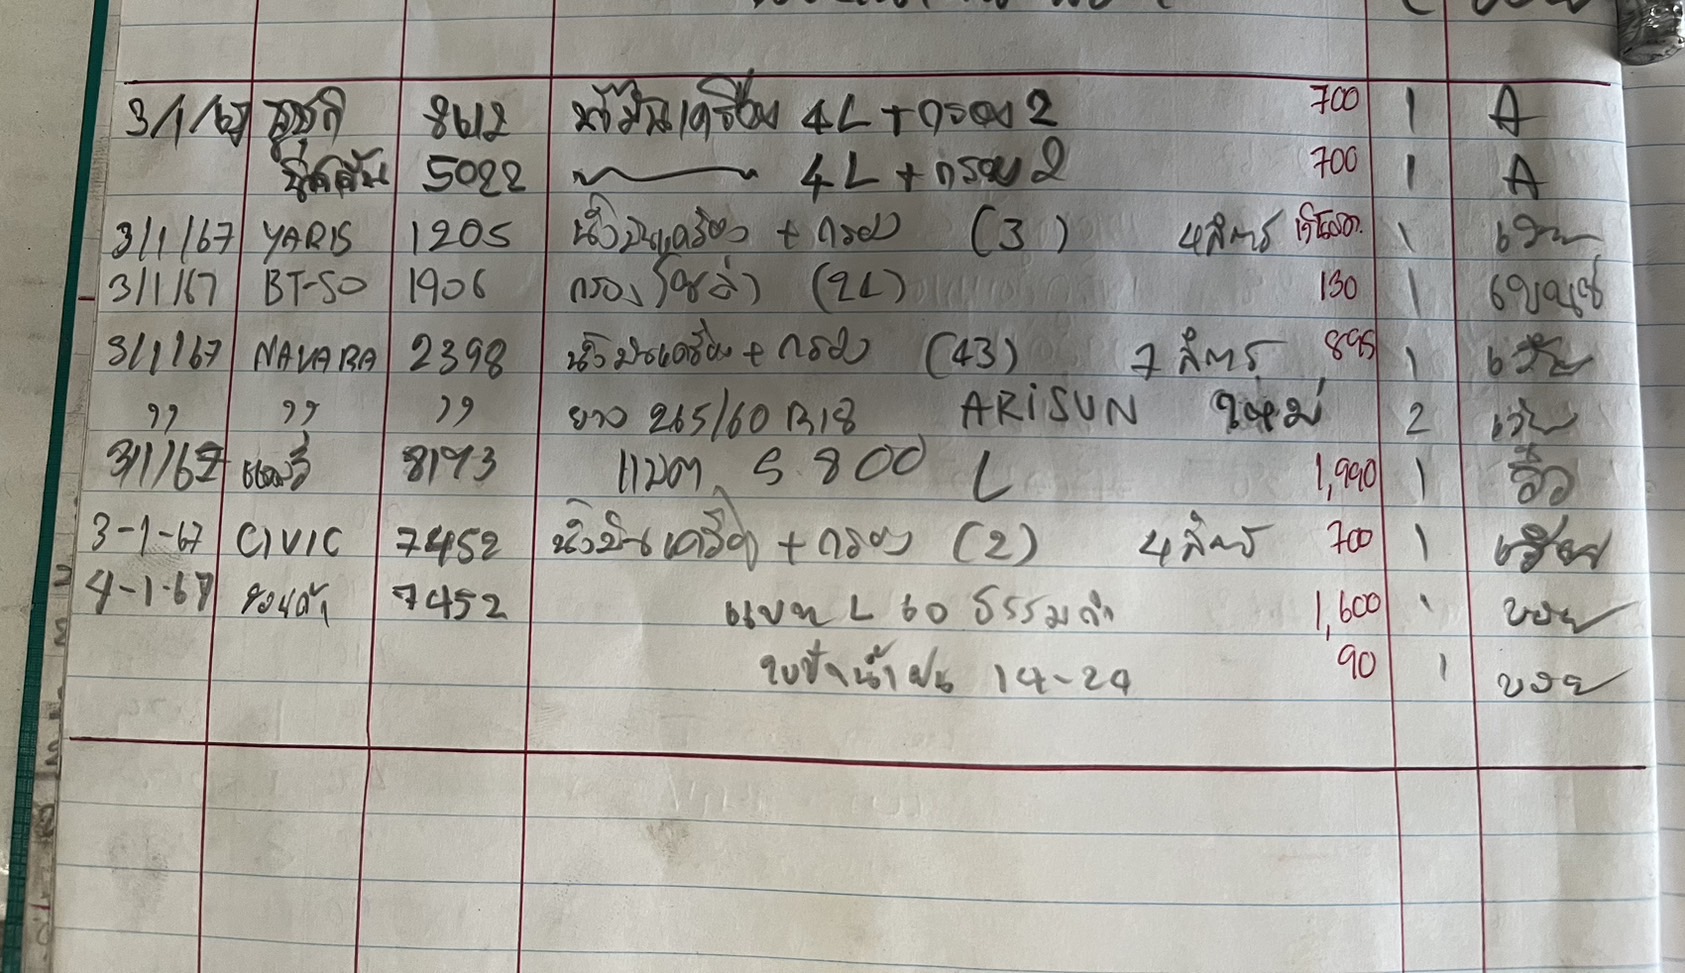 3/1/67 8612 น้ำมันเครื่อง 4L + กรอง 2 700 1 A
5022 4L + กรอง 2 700 1 A
3/1/67 YARIS 1205 น้ำมันเครื่อง + กรอง (3) 4 ลิตร 1
3/1/67 BT-50 1906 กรองโซล่า (2L) 130 1
3/1/67 NAVARA 2398 น้ำมันเครื่อง + กรอง (43) 7 ลิตร 895 1
" " " ยาง 265/60 R18 ARiSUN ใหม่ 2
3/1/67 8193 แบต S 800 L 1,990 1
3-1-67 CIVIC 7452 น้ำมันเครื่อง + กรอง (2) 4 ลิตร 700 1
4-1-67 ฮอนด้า 7452 แบต L 60 ธรรมดา 1,600 1 บอย
ใบปัดน้ำฝน 14-24 90 1 บอย